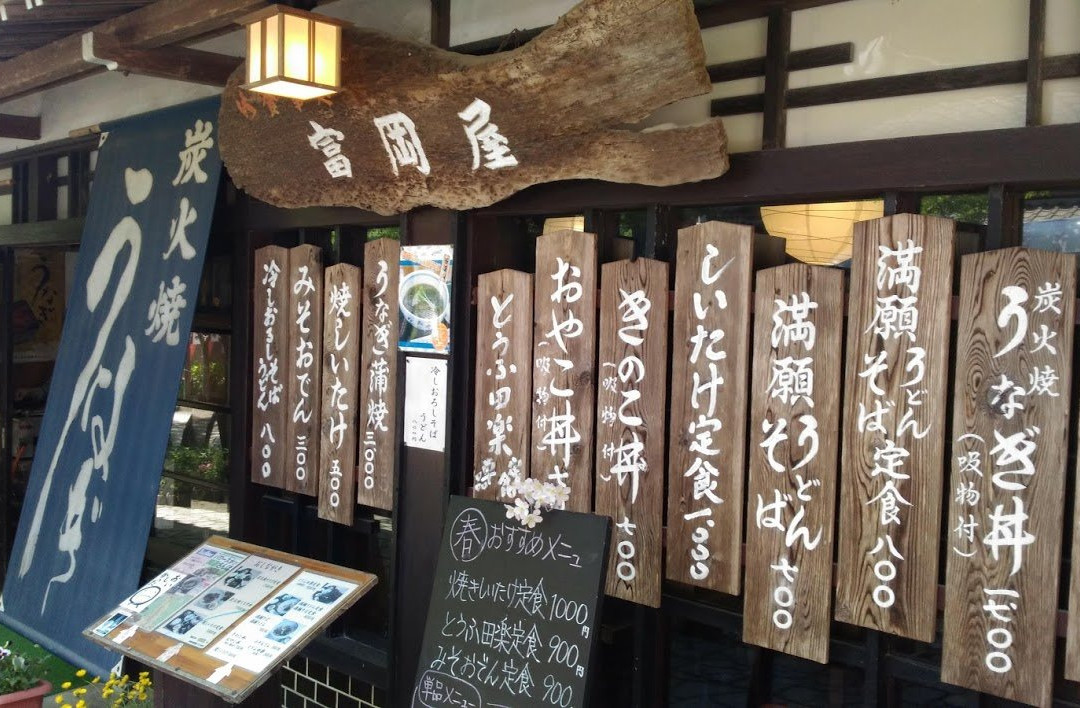 富岡屋
炭火焼
うなぎ
炭火焼
うなぎ丼
(吸物付)
一七〇〇
満願うどん
そば定食
八〇〇
満願うどん
そば
七〇〇
しいたけ定食
一、〇〇〇
きのこ丼
(吸物付)
七〇〇
おやこ丼
(吸物付)
とうふ田楽
うなぎ蒲焼
三〇〇〇
焼しいたけ
五〇〇
みそおでん
三〇〇
冷しおろしそば
うどん
八〇〇
冷しおろしそば
うどん
春 おすすめメニュー
焼きしいたけ定食 1000円
とうふ田楽定食 900円
みそおでん定食 900
単品メニュー